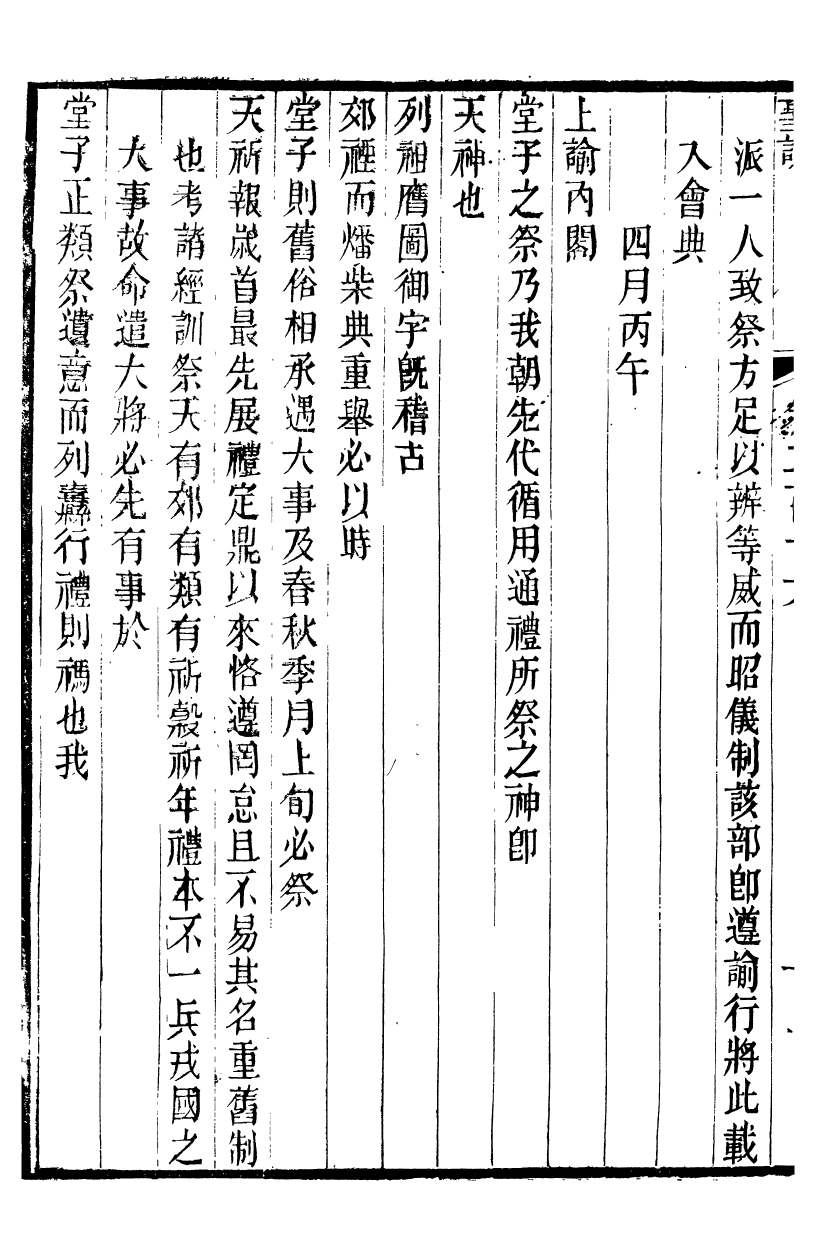 派一人致祭方足以辨等威而昭儀制該部卽遵諭行將此載
入會典
四月丙午
上諭內閣
堂子之祭乃我朝先代循用通禮所祭之神卽
天神也
列祖膺圖御宇旣稽古
郊禋而燔柴典重舉必以時
堂子則舊俗相承遇大事及春秋季月上旬必祭
天祈報歲首最先展禮定鼎以來恪遵罔怠且不易其名重舊制
也考諸經訓祭天有郊有類有祈穀祈年禮本不一兵戎國之
大事故命遣大將必先有事於
堂子正類祭遺意而列纛行禮則禡也我